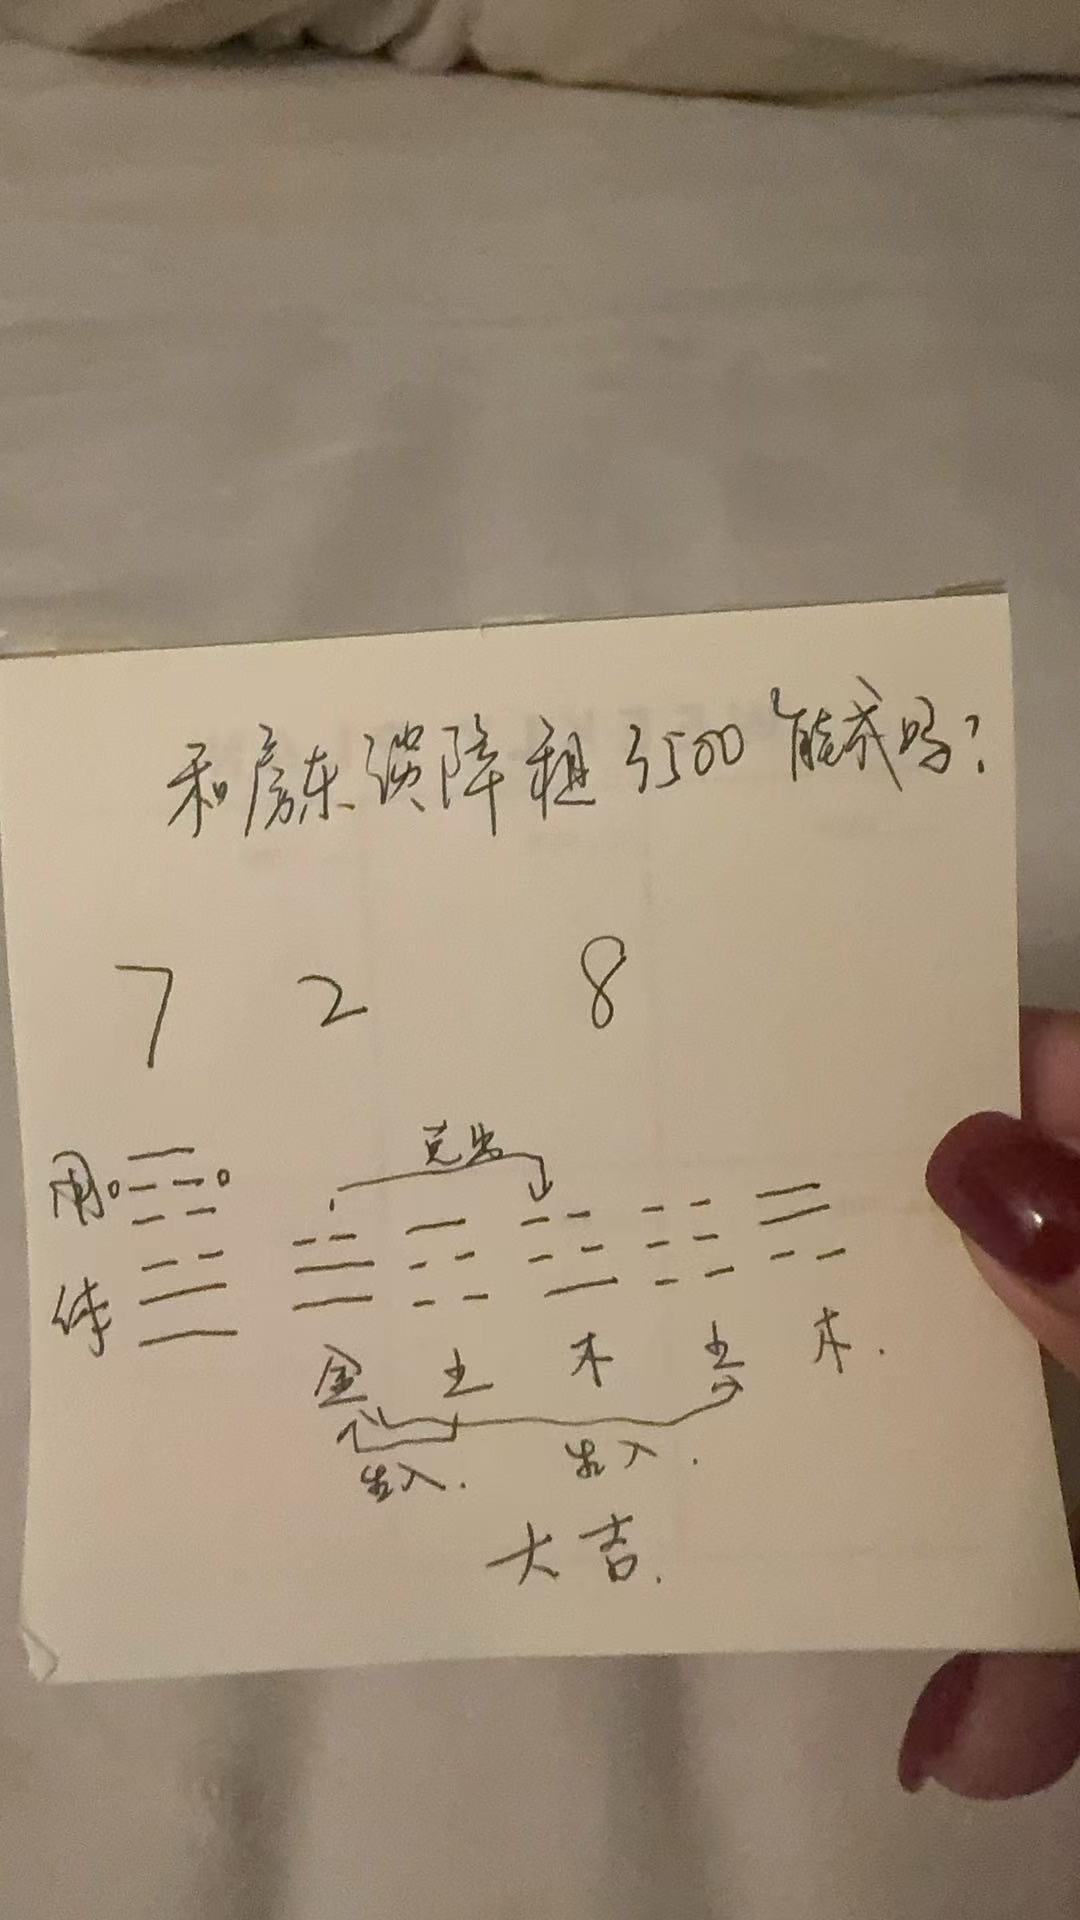 和房东谈降租3500能成吗?
7 2 8
克出
用
体
金 土 木 土 木.
生入. 生入.
大吉.